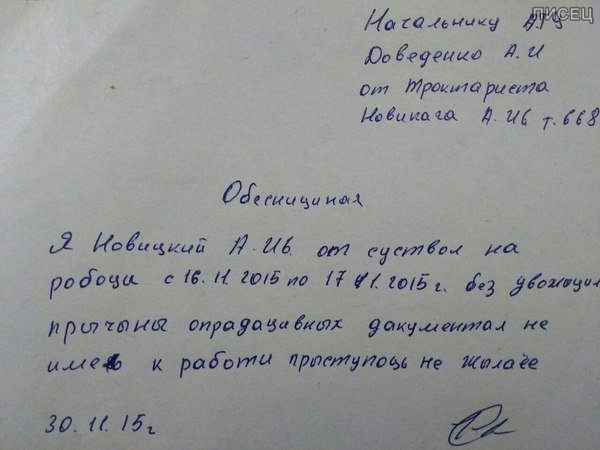 ПИСЕЦ
Начальнику АТЦ
Доведенко А.И
от Трактариста
Новикага А.Ив т.668
Обесницйная
Я Новицкий А.Ив. от суствол на
робоци с 16.11.2015 по 17.11.2015г. без увожицил
прычыны опрадацивных дакументал не
имею к работи прыступоць не жылаее
30.11.15г